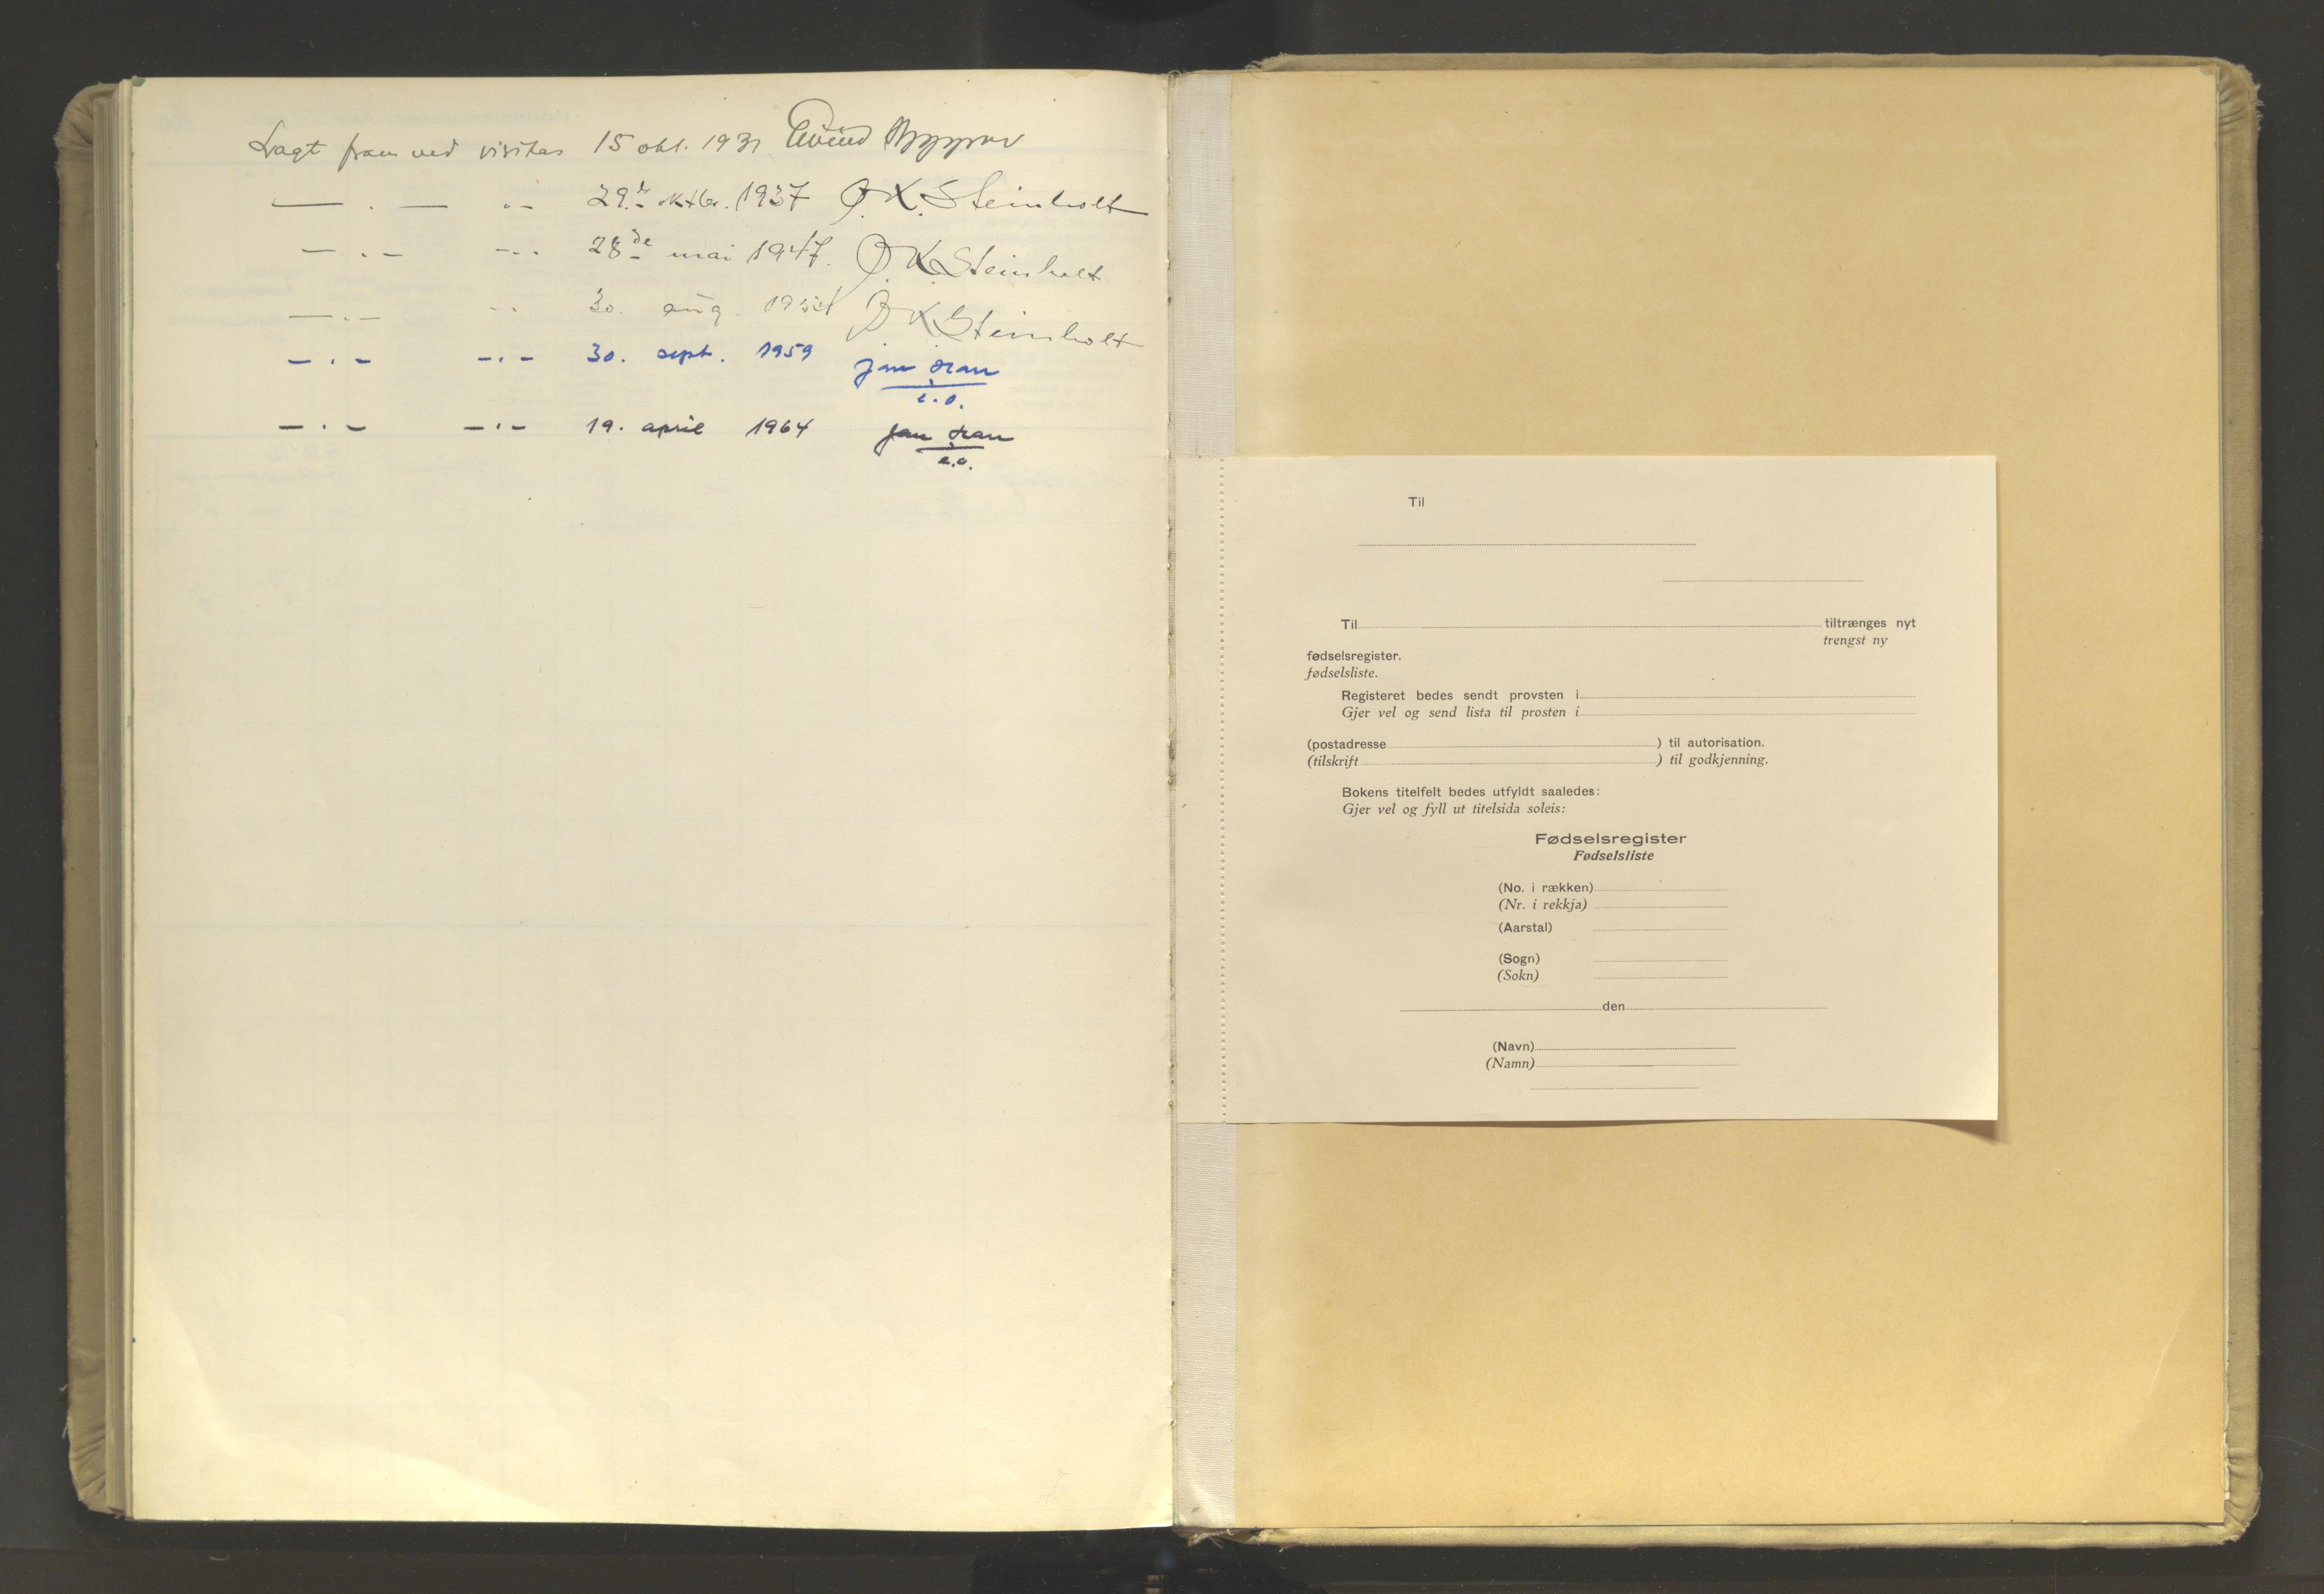 Lagt fram ved visitas 15 okt. 1931 Eivind
— . — . — 29. oktbr. 1937 O. K. Steinholt
— . — — . . 28de mai 1947. O K Steinholt
— . — . . 30. aug. 1954 O K Steinholt
— . — — . — 30. sept. 1959 Jan
e.o.
— . — — . — 19. april 1964 Jan
e.o.
Til
Til tiltrænges nyt
trengst ny
fødselsregister.
fødselsliste.
Registeret bedes sendt provsten i
Gjer vel og send lista til prosten i
(postadresse ) til autorisation.
(tilskrift ) til godkjenning.
Bokens titelfelt bedes utfyldt saaledes:
Gjer vel og fyll ut titelsida soleis:
Fødselsregister
Fødselsliste
(No. i rækken)
(Nr. i rekkja)
(Aarstal)
(Sogn)
(Sokn)
den
(Navn)
(Namn)